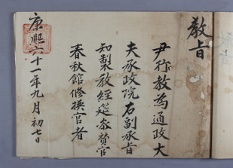 教旨
尹行教為通政大
夫承政院右副承旨
知製教兼經筵參贊官
春秋館修撰官者
康熙六十一年九月初七日